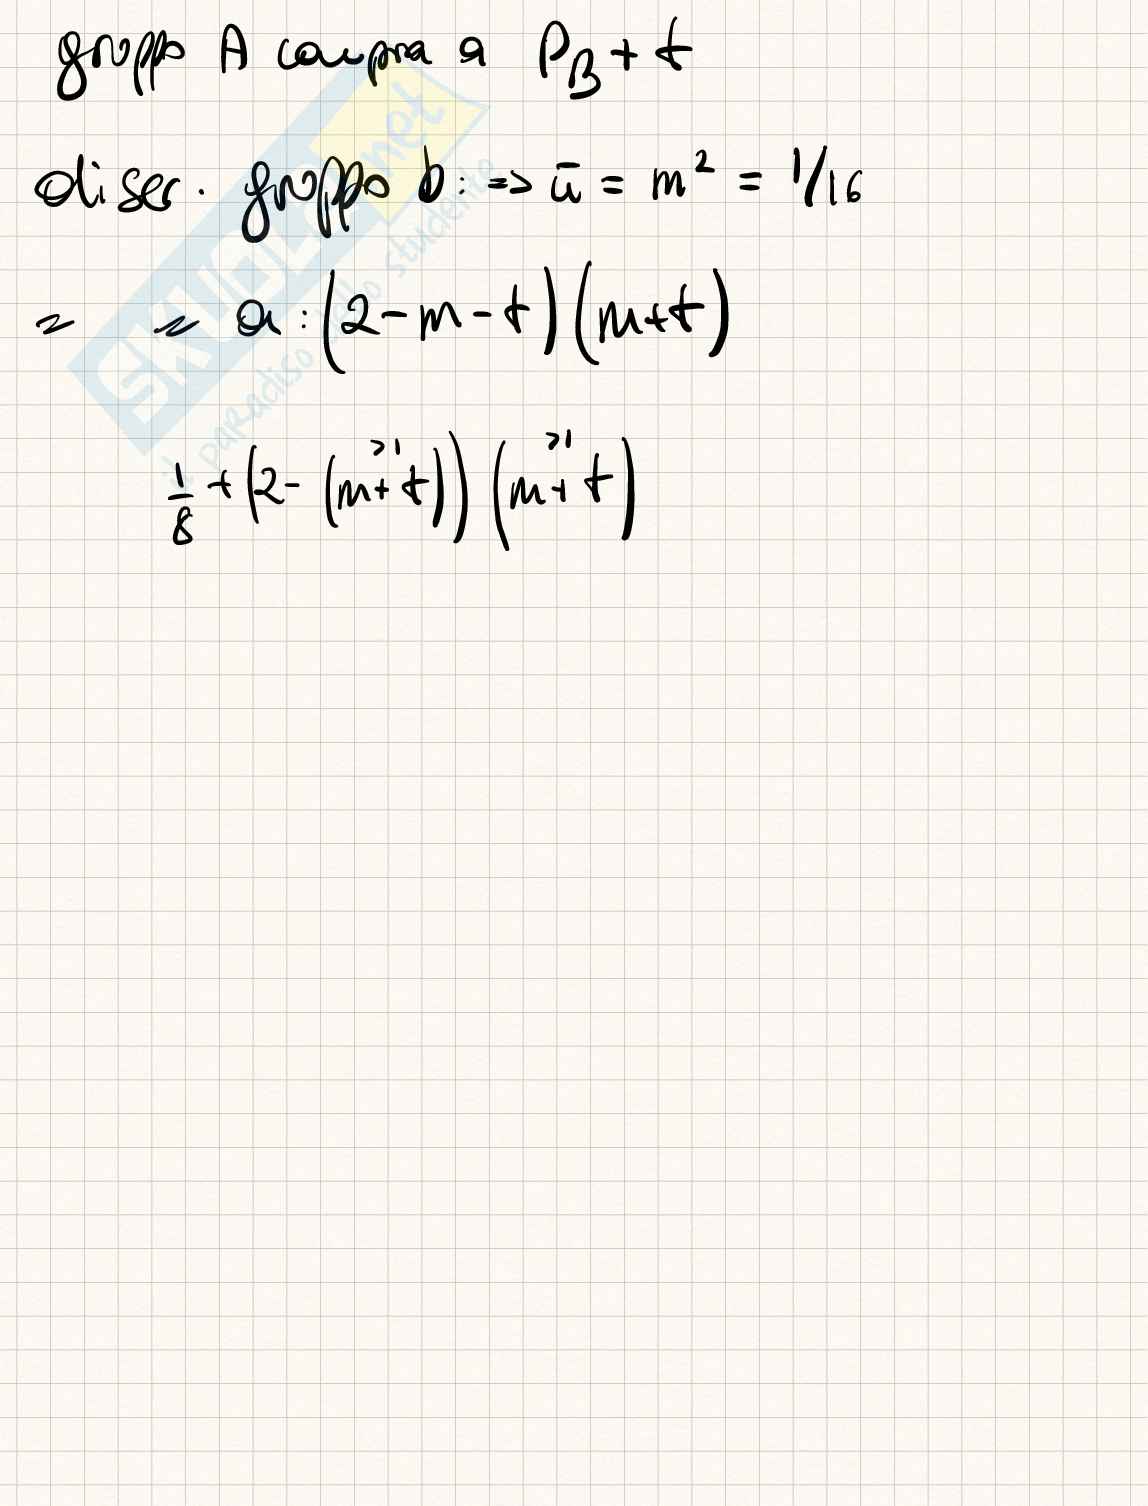 gruppo A compra a P_B + t
discr. gruppo b: => ū = m² = 1/16
〃 〃 a: (2 - m - t) (m + t)
>1 >1
1/8 + (2 - (m + t)) (m + t)
SKUOLA.net
il paradiso dello studente